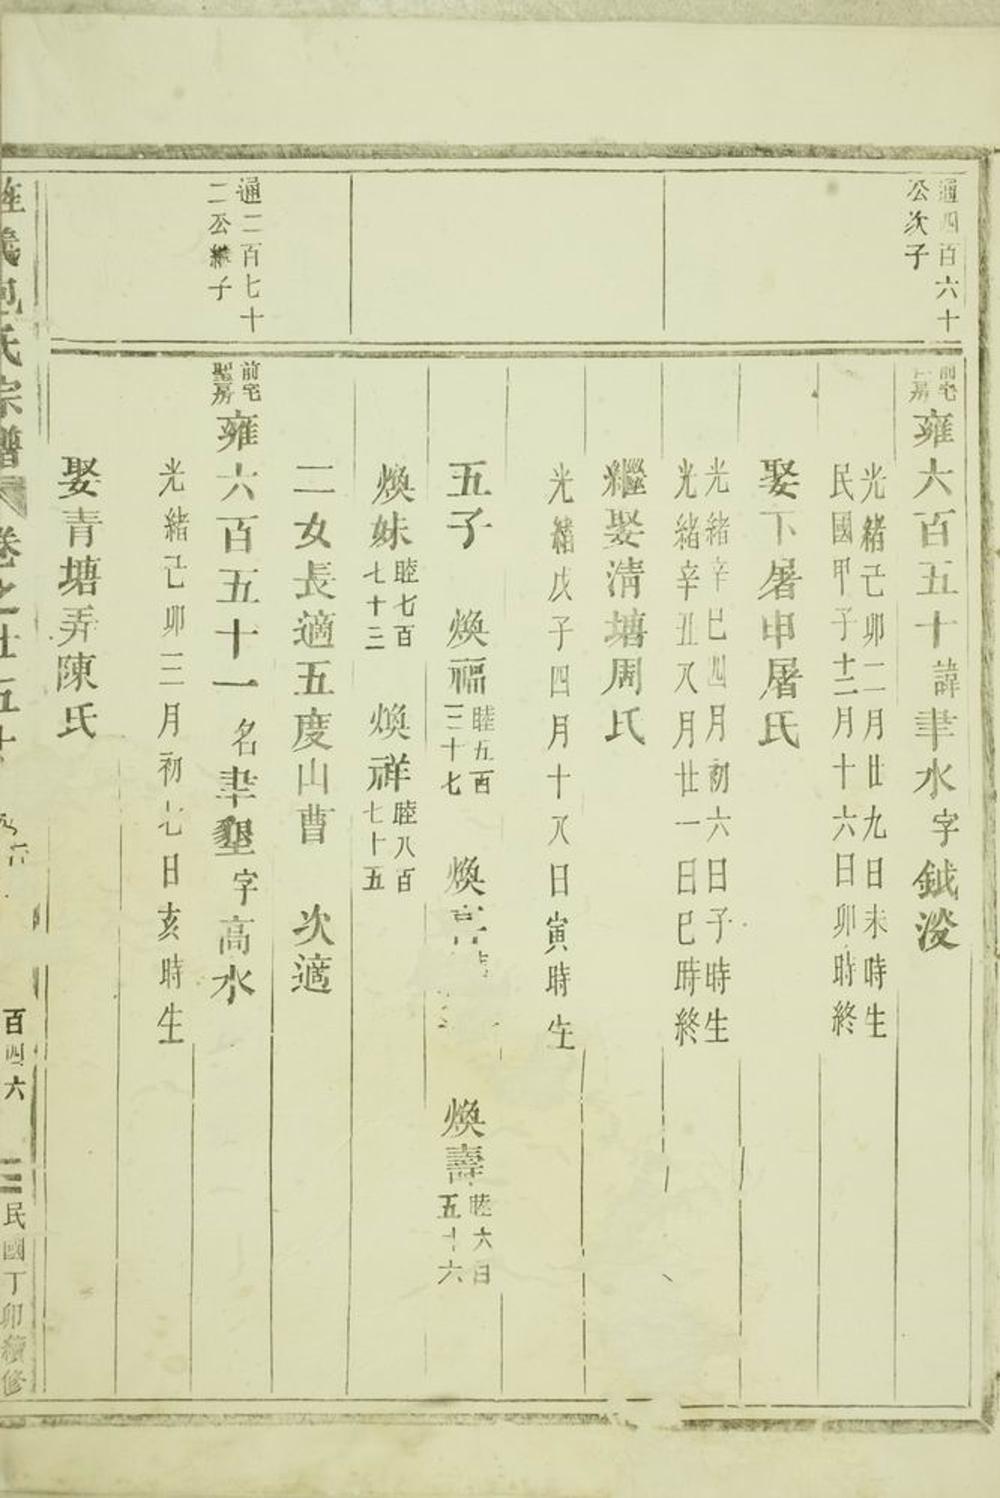 通四百六十
公次子
前宅
房
雍六百五十諱聿水字鉞浚
光緒己卯二月廿九日未時生
民國甲子十二月十六日卯時終
娶下屠申屠氏
光緒辛巳四月初六日子時生
光緒辛丑八月廿一日巳時終
繼娶清塘周氏
光緒戊子四月十八日寅時生
五子 煥福 睦五百三十七 煥 煥壽 睦六百五十六
煥妹 睦七百七十三 煥祥 睦八百七十五
二女長適五度山曹 次適
通二百七十
二公繼子
前宅
聖房
雍六百五十一名聿墾字高水
光緒己卯三月初七日亥時生
娶青塘弄陳氏
氏宗譜 卷之廿五 百四六 民國丁卯續修